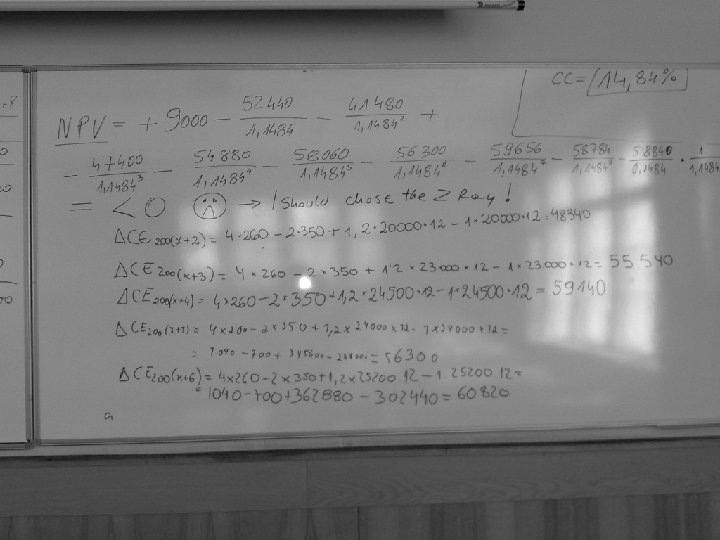 CC = 14,84%
NPV = + 9000 - 52440/1,1484 - 41480/1,1484² +
- 47400/1,1484³ - 54880/1,1484⁴ - 58060/1,1484⁵ - 56300/1,1484⁶ - 59656/1,1484⁷ - 58784/1,1484⁸ - 58840/0,1484 · 1/1,1484
= < 0 ☹ → I should chose the Z Ray!
ΔCE200(x+2) = 4×260 - 2×350 + 1,2×20000×12 - 1×20000×12 = 48340
ΔCE200(x+3) = 4×260 - 2×350 + 1,2×23000×12 - 1×23.000×12 = 55540
ΔCE200(x+4) = 4×260 - 2×350 + 1,2×24500×12 - 1×24500×12 = 59140
= 56300
ΔCE200(x+6) = 4×260 - 2×350 + 1,2×25200·12 - 1·25200·12 =
= 1040 - 700 + 362880 - 302440 = 60820